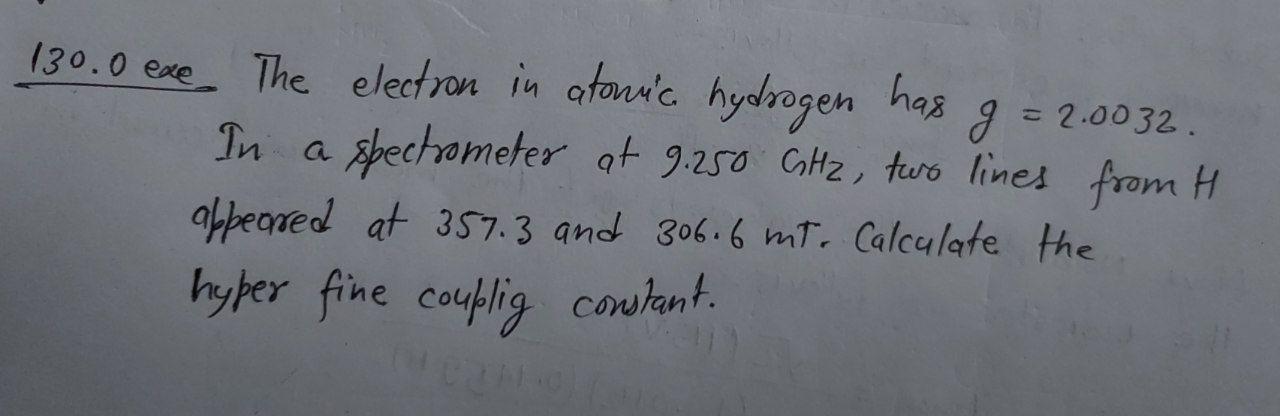 130.0 exe The electron in atomic hydrogen has g = 2.0032.
In a spectrometer at 9.250 GHz, two lines from H
appeared at 357.3 and 306.6 mT. Calculate the
hyper fine couplig constant.